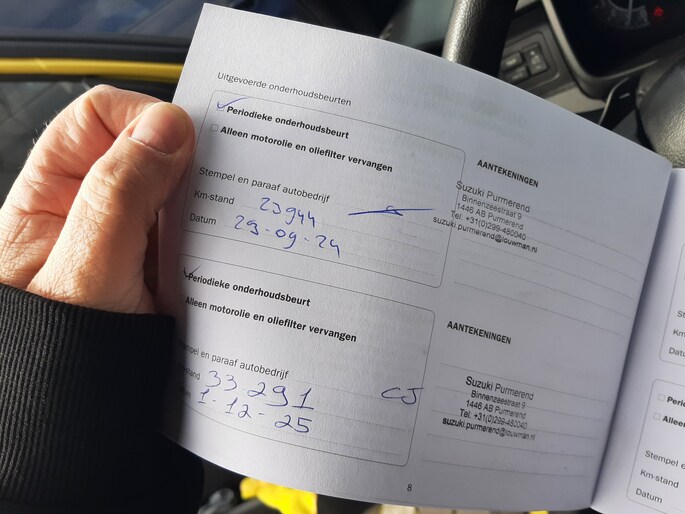 Uitgevoerde onderhoudsbeurten
Periodieke onderhoudsbeurt
Alleen motorolie en oliefilter vervangen
Stempel en paraaf autobedrijf
Km-stand 23944
Datum 29-09-24
AANTEKENINGEN
Suzuki Purmerend
Binnenzeestraat 9
1446 AB Purmerend
Tel. +31(0)299-480040
suzuki.purmerend@louwman.nl
Periodieke onderhoudsbeurt
Alleen motorolie en oliefilter vervangen
Stempel en paraaf autobedrijf
stand 33291 CJ
1-12-25
AANTEKENINGEN
Suzuki Purmerend
Binnenzeestraat 9
1446 AB Purmerend
Tel. +31(0)299-480040
suzuki.purmerend@louwman.nl
8
Datu
Perio
Alleen
Stempel e
Km-stand
Datum